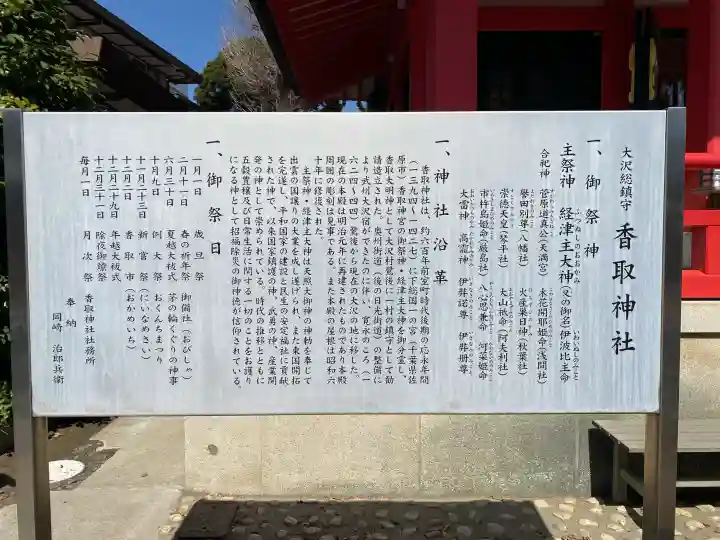 大沢総鎮守 香取神社
一、御祭神
主祭神 経津主大神(又の御名)伊波比主命
ふつぬしのおおかみ いわいぬしのみこと
合祀神 菅原道真公(天満宮) 木花開耶姫命(浅間社)
誉田別尊(八幡社) 火産巣日神(秋葉社)
崇徳天皇(琴平社) 大山祇命(阿夫利社)
市杵島姫命(厳島社) 八心思兼命 河菜姫命
大雷神 高龗神 伊弉諾尊 伊弉册尊
一、神社沿革
香取神社は、約六百年前室町時代後期の応永年間
(一三九四~一四二七)に下総国一の宮(千葉県佐
原市)香取神宮の御祭神・経津主大神を御分霊し、
香取大明神として大沢村鷺後に一村の鎮守として勧
請造立された。奥州街道(後の日光街道)の整備に
より武州大沢宿ができたのに伴い、寛永のころ(一
六二四~四四)鷺後から現在の大沢の地に移した。
現在の本殿は明治元年に再建されたものであり本殿
周囲の彫刻は見事である。また本殿の屋根は昭和六
十年に修復された。
主祭神・経津主大神は天照大御神の神勅を奉じて
出雲の国譲りの大業を成し遂げられ、また東国開拓
を完遂し、平和国家の建設と民生の安定福祉に貢献
された神で、以来国家鎮護の神、武勇の神、産業開
発の神として崇められている。時代の推移とともに
五穀豊穣及び日常生活に関する一切のことをお護り
になる神として招福除災の御神徳が信仰されている。
一、御祭日
一月一日 歳旦祭
二月十一日 春の祈年祭 御備社(おびしゃ)
六月三十日 夏越大祓式 茅の輪くぐりの神事
十月九日 例大祭 おくんちまつり
十一月二十三日 新嘗祭(にいなめさい)
十二月二日 香取市(おかめいち)
十二月二十九日 年越大祓式
十二月三十一日 除夜御燎祭
毎月一日 月次祭 香取神社社務所
奉納
岡崎 治郎兵衛